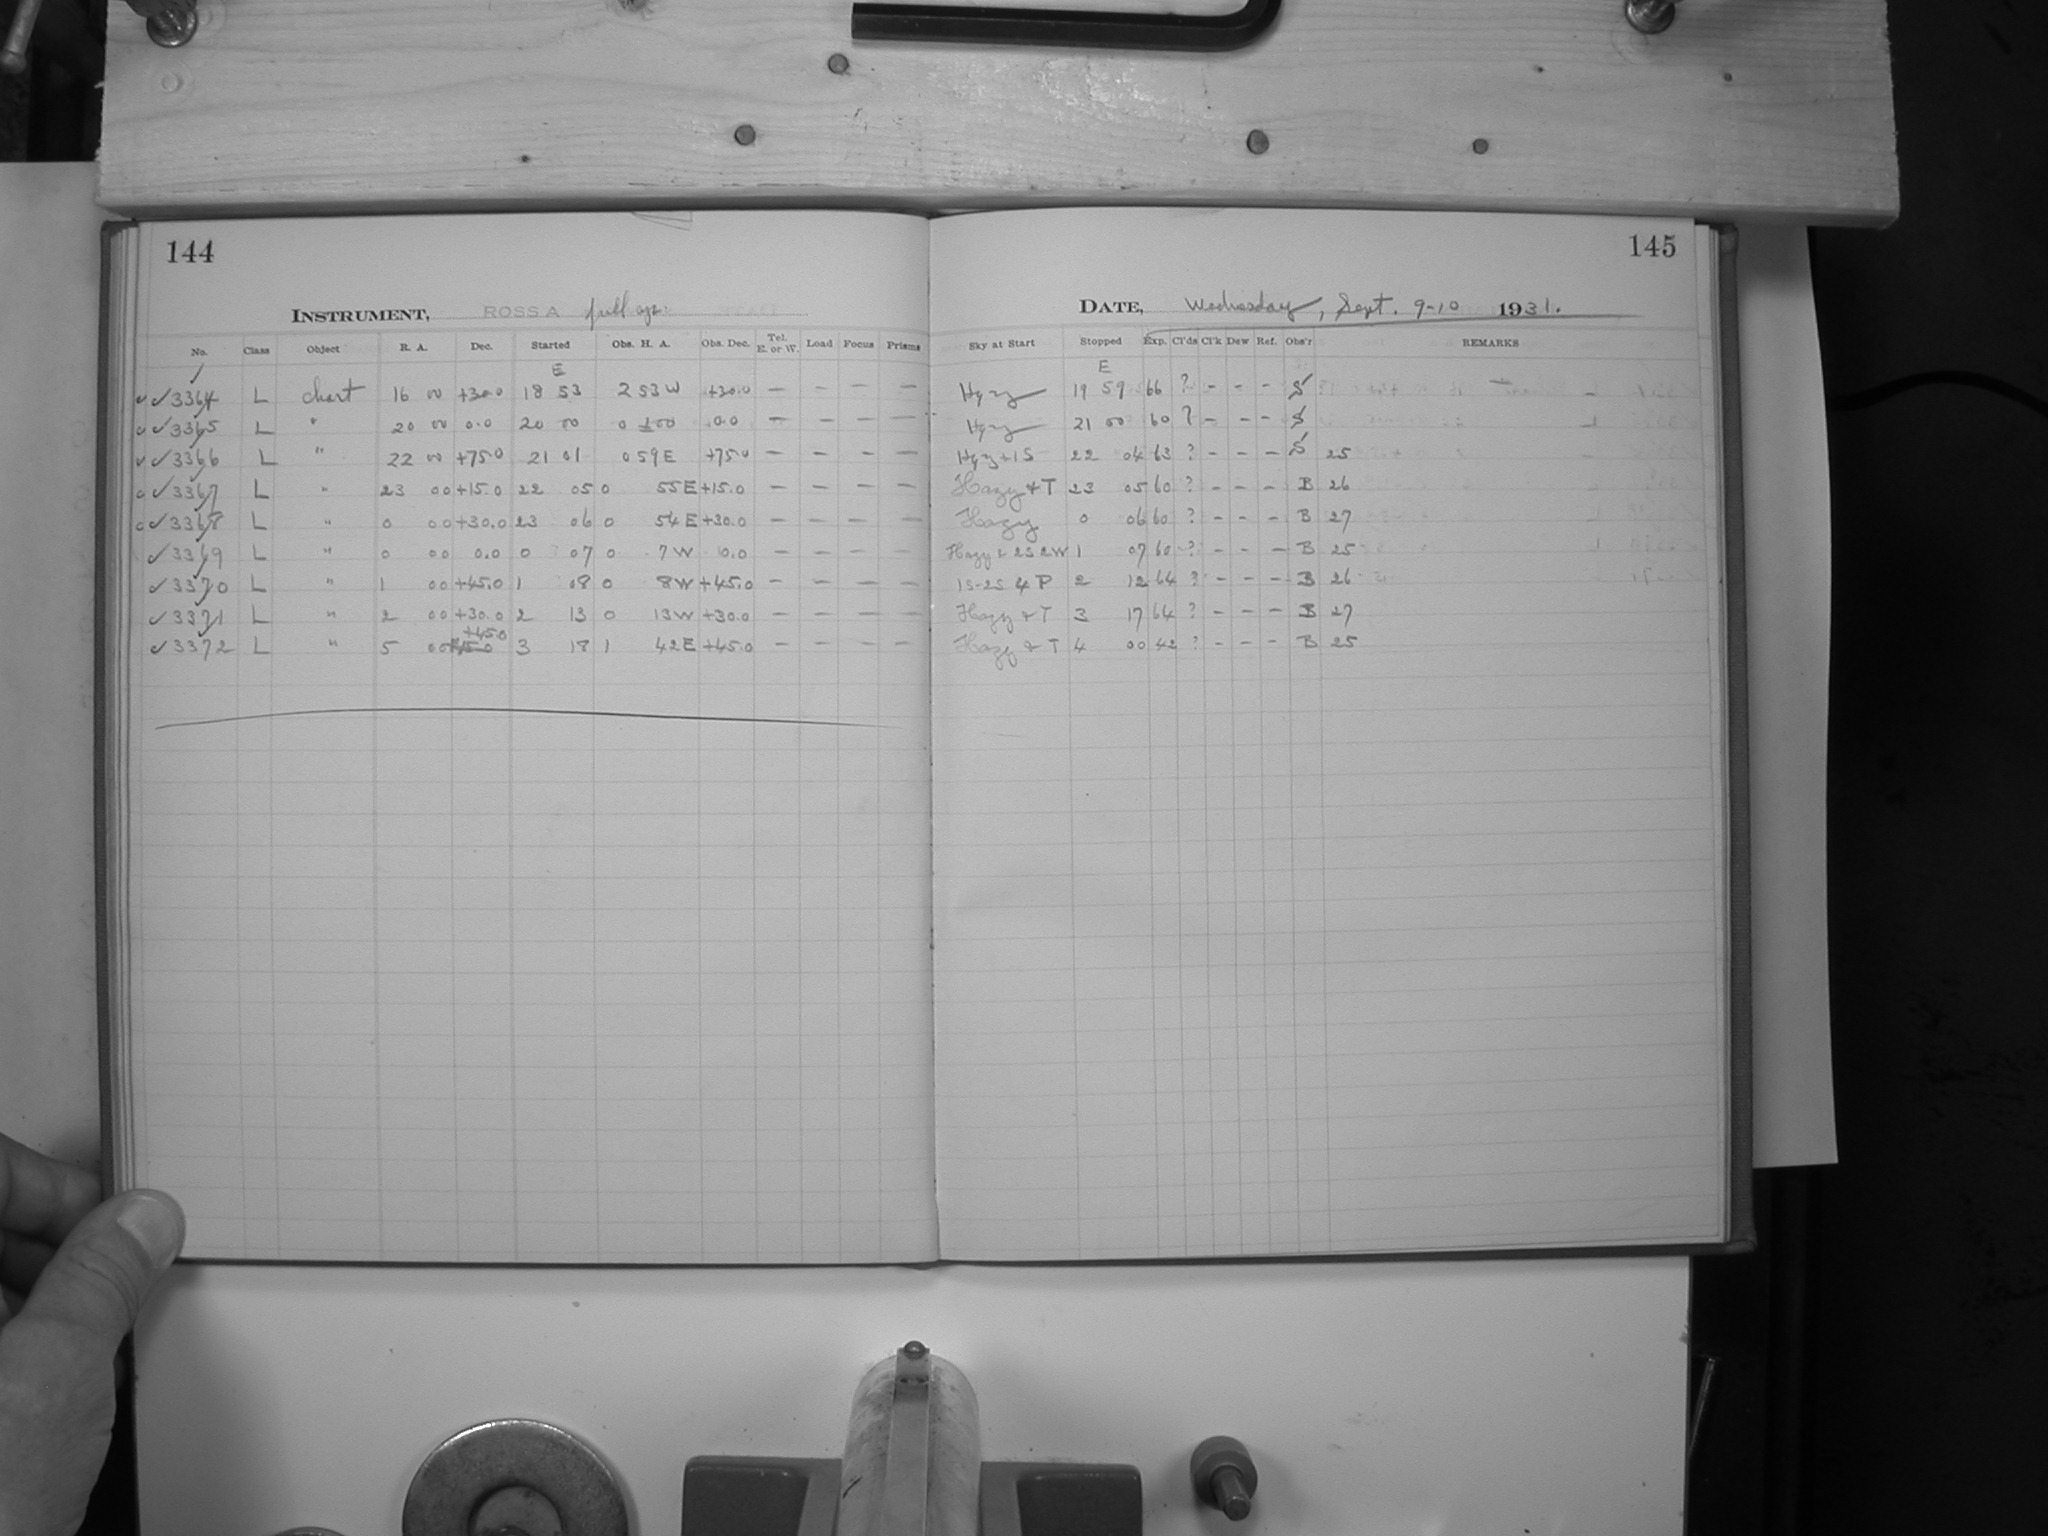 144
INSTRUMENT, ROSS A full ap.
No. Class Object R. A. Dec. Started Obs. H. A. Obs. Dec. Tel. E. or W. Load Focus Prisms
E
3364 L chart 16 00 +30.0 18 53 2 53 W +30.0 — — — —
3365 L " 20 00 0.0 20 00 0 00 0.0 — — — —
3366 L " 22 00 +75.0 21 01 0 59 E +75.0 — — — —
3367 L " 23 00 +15.0 22 05 0 55 E +15.0 — — — —
3368 L " 0 00 +30.0 23 06 0 54 E +30.0 — — — —
3369 L " 0 00 0.0 0 07 0 7 W 0.0 — — — —
3370 L " 1 00 +45.0 1 08 0 8 W +45.0 — — — —
3371 L " 2 00 +30.0 2 13 0 13 W +30.0 — — — —
3372 L " 5 00 +45.0 3 18 1 42 E +45.0 — — — —
145
DATE, Wednesday, Sept. 9-10 1931.
Sky at Start Stopped Exp. Cl'ds Cl'k Dew Ref. Obs'r REMARKS
E
Hazy 19 59 66 ? - - - S
Hazy 21 00 60 ? - - - S
Hazy + 1S 22 04 63 ? - - - S 25
Hazy + T 23 05 60 ? - - - B 26
Hazy 0 06 60 ? - - - B 27
Hazy + 2S 2W 1 07 60 ? - - - B 25
1S-2S 4 P 2 12 64 ? - - - B 26
Hazy + T 3 17 64 ? - - - B 27
Hazy + T 4 00 42 ? - - - B 25